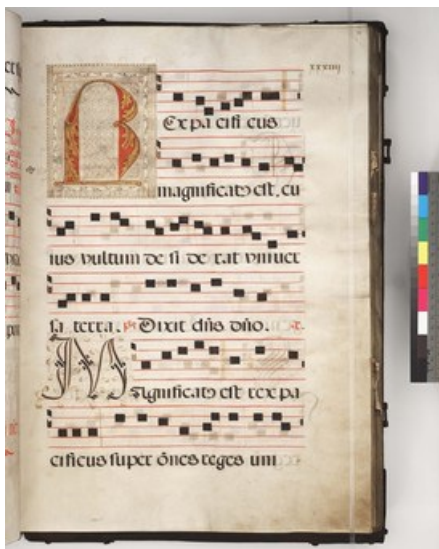 REx pa cifi cus
magnificatꝰ est, cu
ius vultum de si de rat vniuer
sa terra. ps Dixit dñs dño.
Magnificatꝰ est rex pa
cificus super õnes reges uni